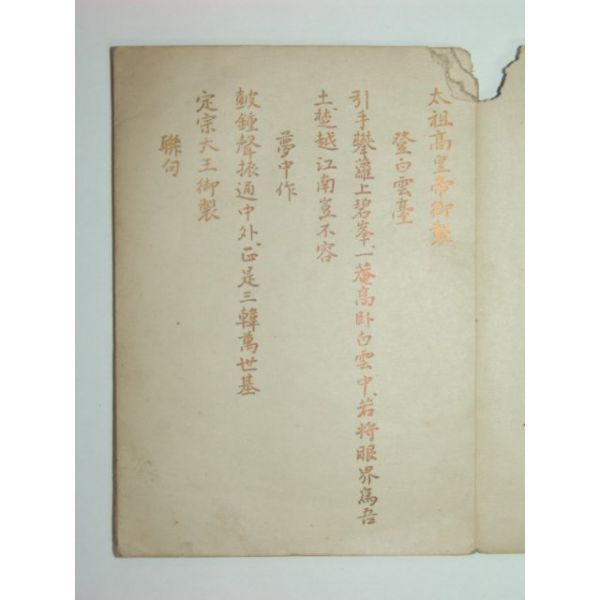 太祖高皇帝御製
登白雲臺
引手攀蘿上碧峯一菴高卧白雲中若將眼界爲吾
土楚越江南豈不容
夢中作
皷鍾聲振通中外正是三韓萬世基
定宗大王御製
聯句